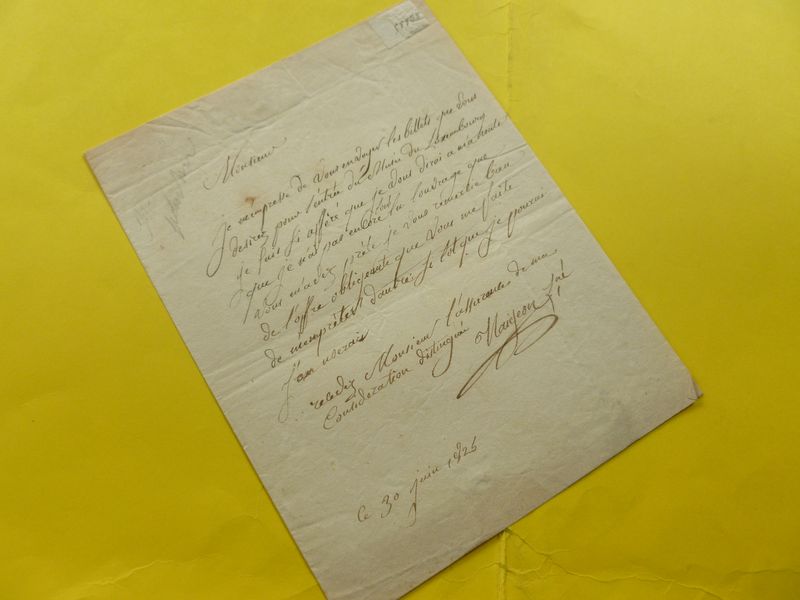 Monsieur
je m'empresse de vous envoyer les billets que vous
desirez pour l'entrée du Musée du Luxembourg
je suis si affére que je vous dirai a ma honte
que je n'ai pas encore lu l'ouvrage que
vous m'avez prété je vous remercie bien
de l'offre obligeante que vous me faite
de m'en prêter d'autre si tot que je pourai
j'en userai
recevez Monsieur l'assurance de ma
Considération distinguée
Naigeon
le 30 juin 1825